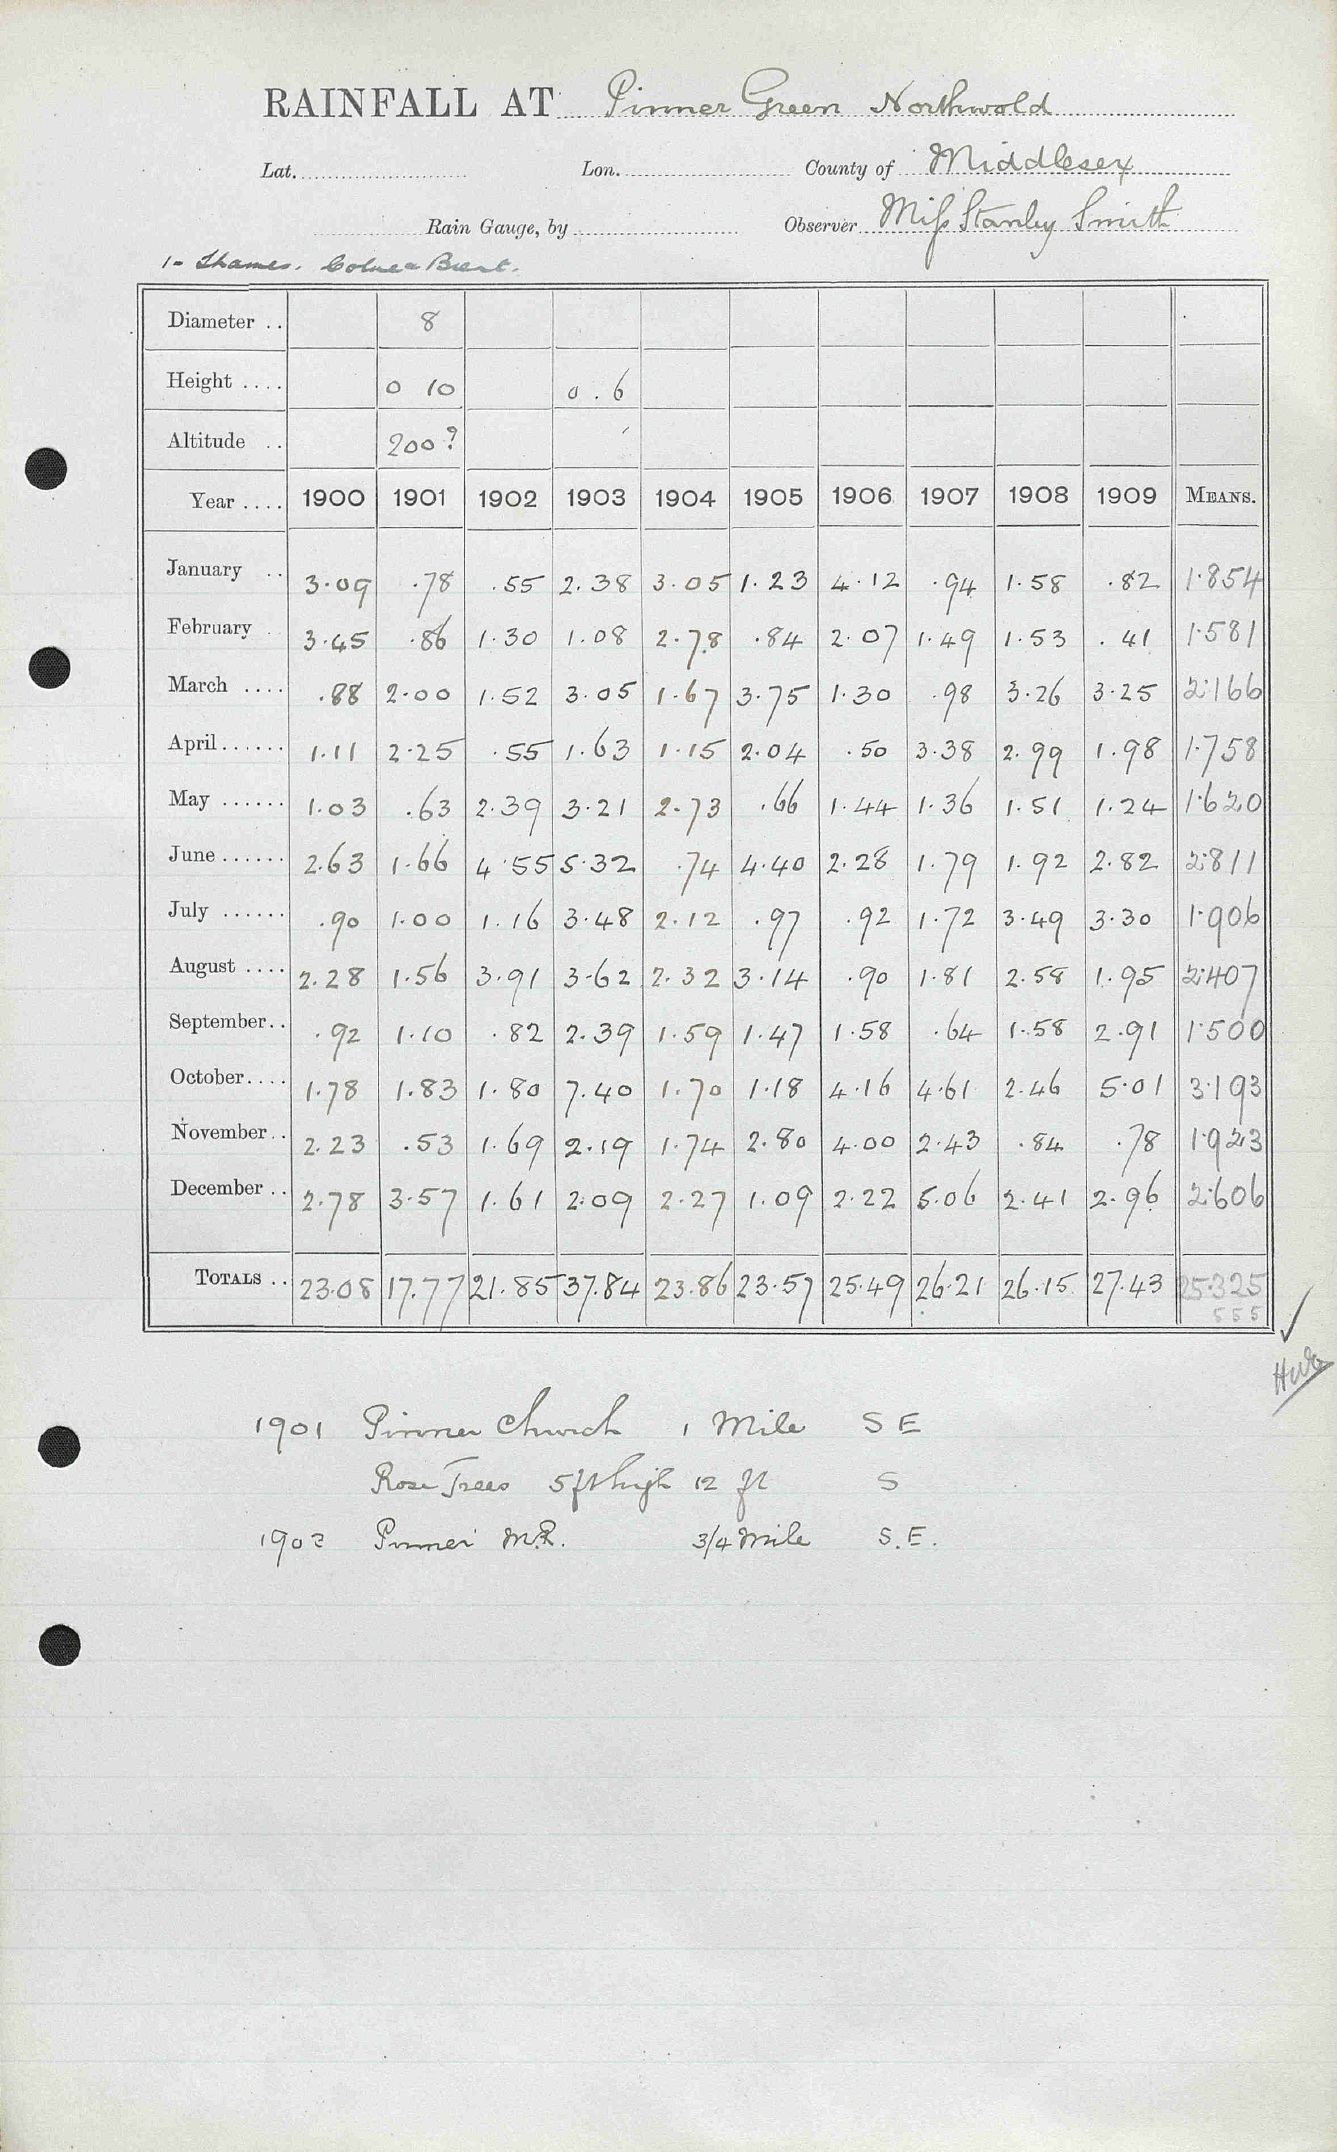 RAINFALL AT Pinner Green Northwold
Lat. Lon. County of Middlesex
Rain Gauge, by Observer Miss Stanley Smith
1- Thames. Colne & Brent.
Diameter .. 8
Height .... 0 10 0.6
Altitude .. 200?
Year .... 1900 1901 1902 1903 1904 1905 1906 1907 1908 1909 MEANS.
January .. 3.09 .78 .55 2.38 3.05 1.23 4.12 .94 1.58 .82 1.854
February 3.45 .86 1.30 1.08 2.78 .84 2.07 1.49 1.53 .41 1.581
March .... .88 2.00 1.52 3.05 1.67 3.75 1.30 .98 3.26 3.25 2.166
April ...... 1.11 2.25 .55 1.63 1.15 2.04 .50 3.38 2.99 1.98 1.758
May ...... 1.03 .63 2.39 3.21 2.73 .66 1.44 1.36 1.51 1.24 1.620
June ...... 2.63 1.66 4.55 5.32 .74 4.40 2.28 1.79 1.92 2.82 2.811
July ...... .90 1.00 1.16 3.48 2.12 .97 .92 1.72 3.49 3.30 1.906
August .... 2.28 1.56 3.91 3.62 2.32 3.14 .90 1.81 2.58 1.95 2.407
September .. .92 1.10 .82 2.39 1.59 1.47 1.58 .64 1.58 2.91 1.500
October .... 1.78 1.83 1.80 7.40 1.70 1.18 4.16 4.61 2.46 5.01 3.193
November .. 2.23 .53 1.69 2.19 1.74 2.80 4.00 2.43 .84 .78 1.923
December .. 2.78 3.57 1.61 2.09 2.27 1.09 2.22 5.06 2.41 2.96 2.606
TOTALS .. 23.08 17.77 21.85 37.84 23.86 23.57 25.49 26.21 26.15 27.43 25.325
555
1901 Pinner Church 1 Mile S E
Rose Trees 5 ft high 12 ft S
1902 Pinner M.R. 3/4 Mile S.E.